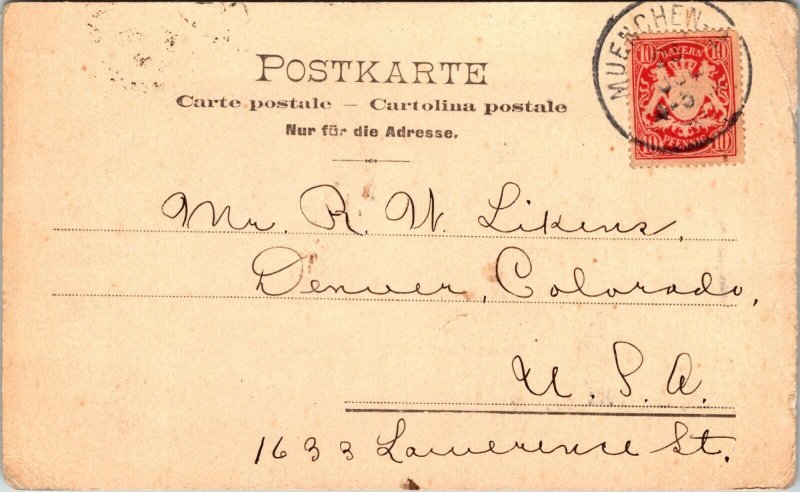 MUENCHEN
BAYERN
10 10
10 PFENNIG 10
POSTKARTE
Carte postale – Cartolina postale
Nur für die Adresse.
Mr. R. W. Likens,
Denver, Colorado,
U. S. A.
1633 Lawerence St.